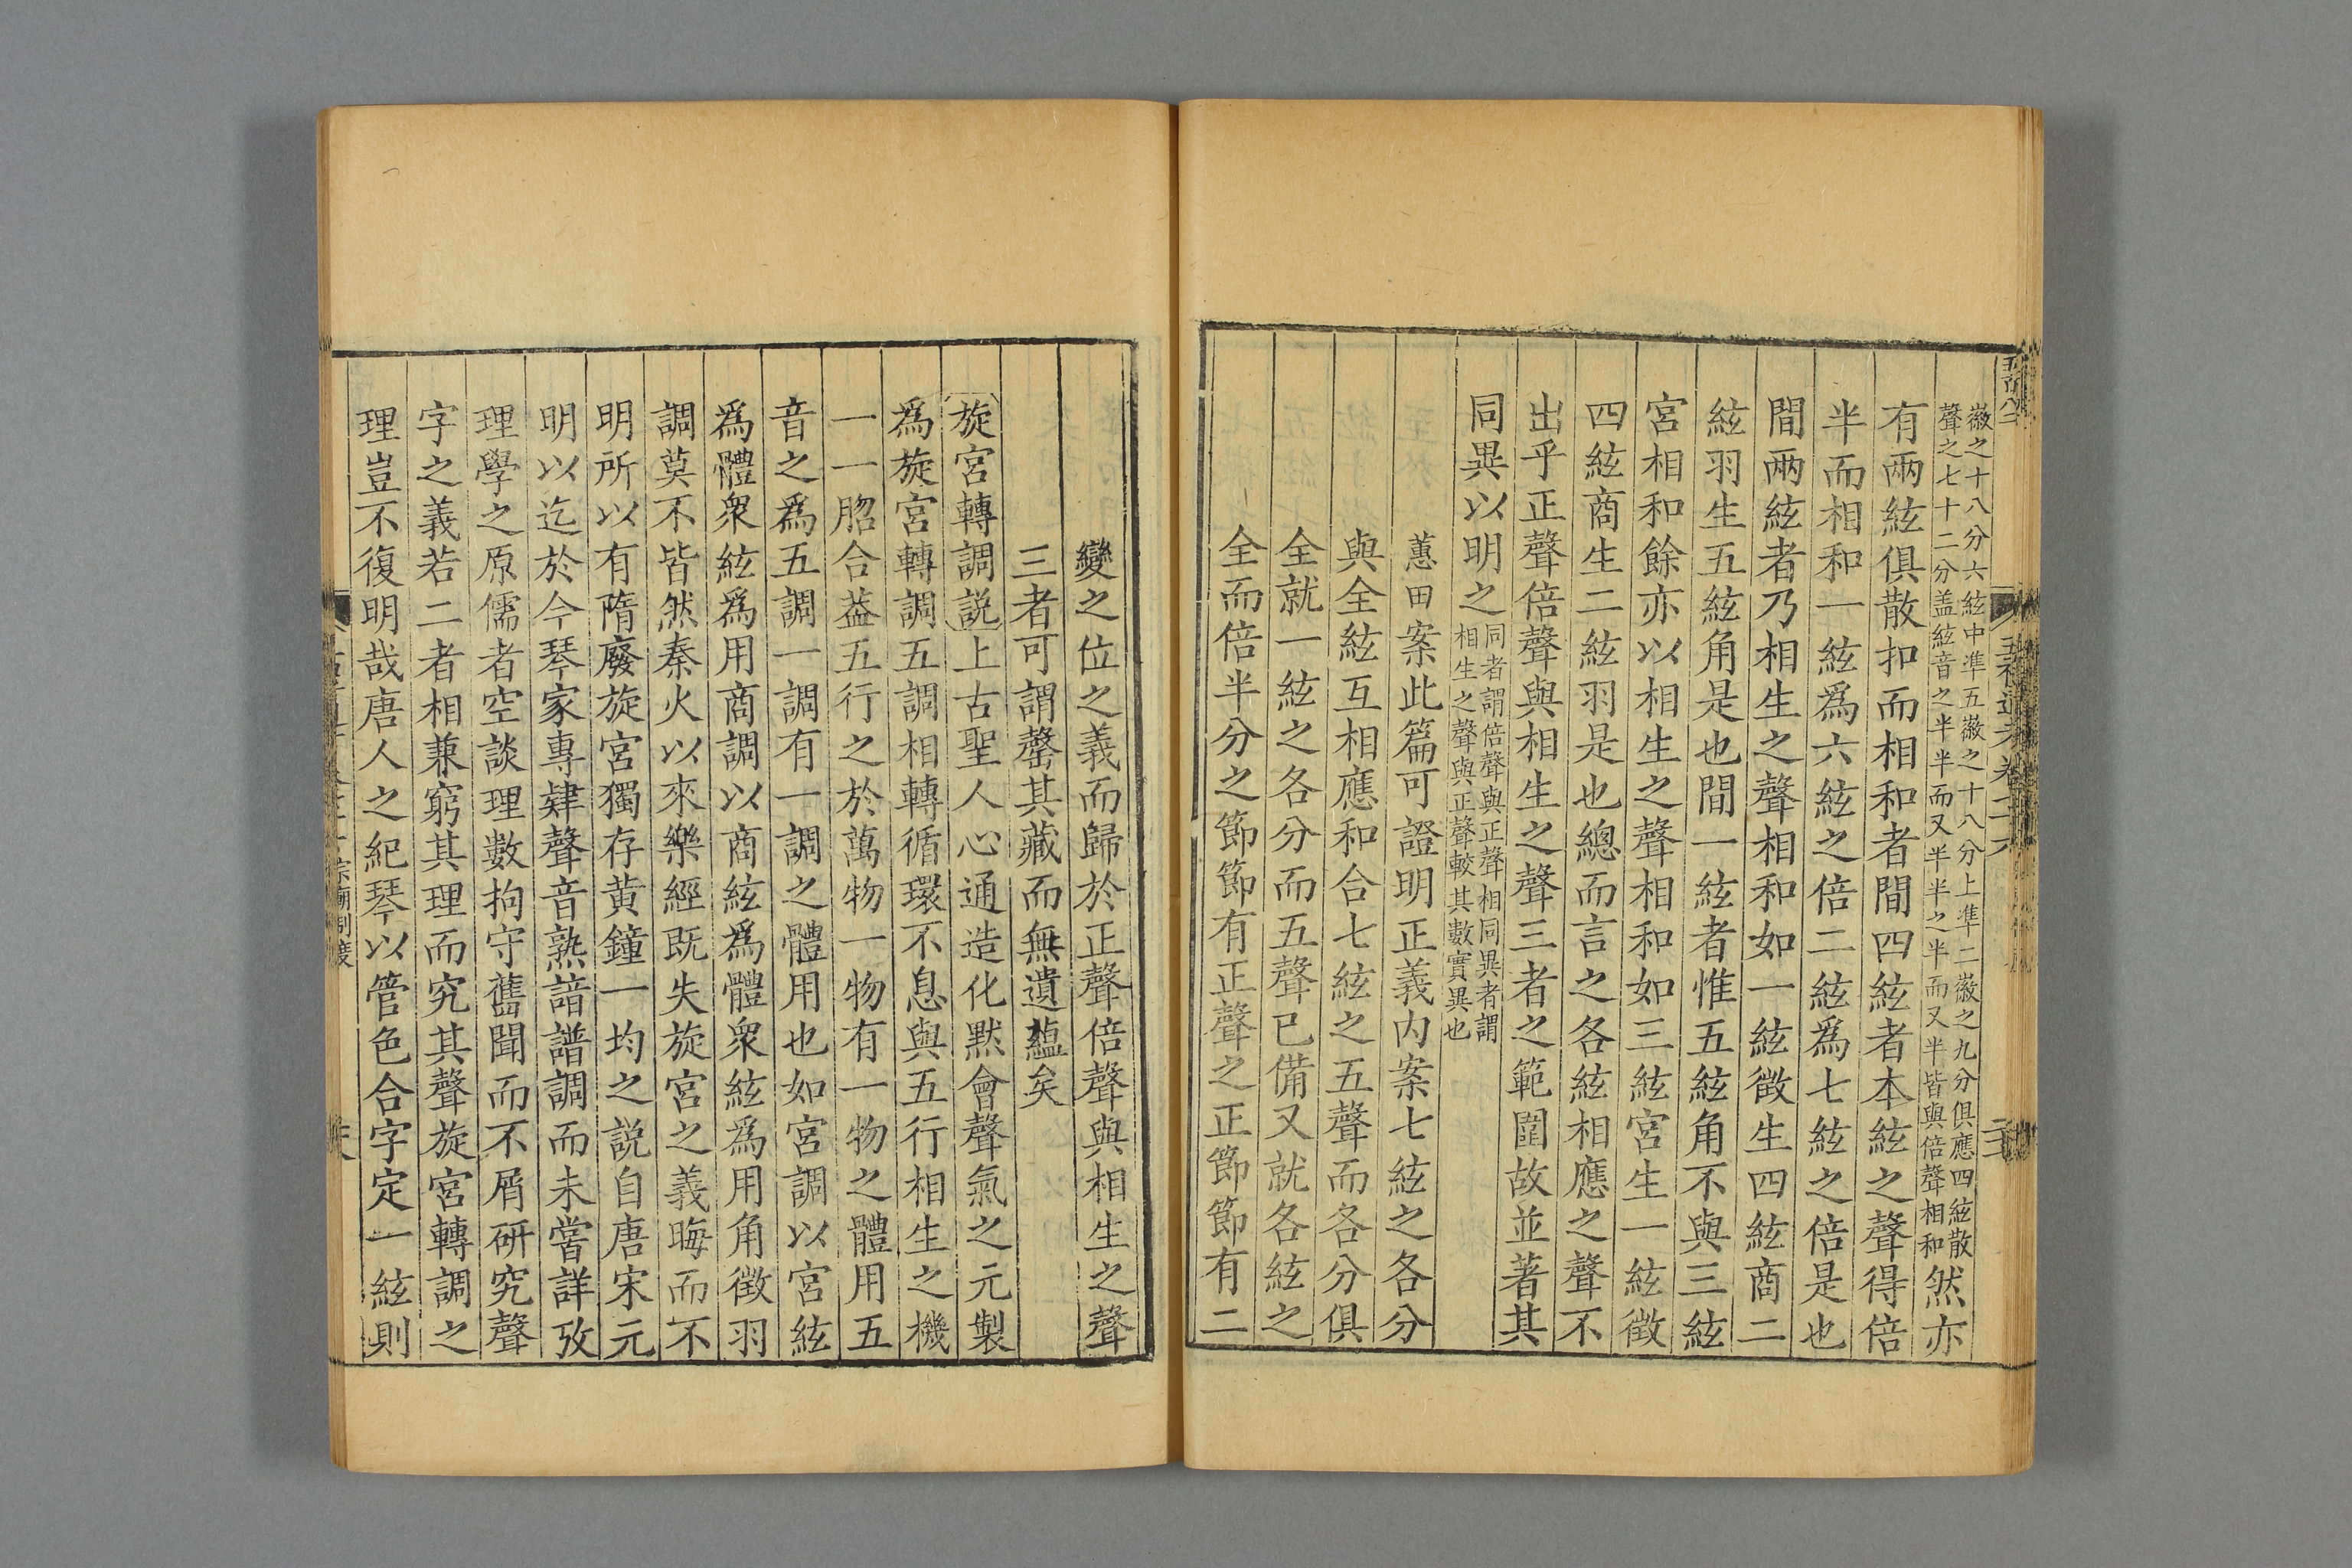 徽之十八分六絃中準五徽之十八分上準二徽之九分俱應四絃散
聲之七十二分盖絃音之半半而又半半之半而又半皆與倍聲相和然亦
有兩絃俱散扣而相和者間四絃者本絃之聲得倍
半而相和一絃爲六絃之倍二絃爲七絃之倍是也
間兩絃者乃相生之聲相和如一絃徵生四絃商二
絃羽生五絃角是也間一絃者惟五絃角不與三絃
宮相和餘亦以相生之聲相和如三絃宮生一絃徵
四絃商生二絃羽是也總而言之各絃相應之聲不
出乎正聲倍聲與相生之聲三者之範圍故並著其
同異以明之同者謂倍聲與正聲相同異者謂
相生之聲與正聲較其數實異也
蕙田案此篇可證明正義内案七絃之各分
與全絃互相應和合七絃之五聲而各分俱
全就一絃之各分而五聲已備又就各絃之
全而倍半分之節節有正聲之正節節有二
變之位之義而歸於正聲倍聲與相生之聲
三者可謂罄其藏而無遺蘊矣
旋宮轉調説上古聖人心通造化黙會聲氣之元製
爲旋宮轉調五調相轉循環不息與五行相生之機
一一脗合葢五行之於萬物一物有一物之體用五
音之爲五調一調有一調之體用也如宮調以宮絃
爲體衆絃爲用商調以商絃爲體衆絃爲用角徵羽
調莫不皆然秦火以來樂經既失旋宮之義晦而不
明所以有隋廢旋宮獨存黄鐘一均之説自唐宋元
明以迄於今琴家專肄聲音熟諳譜調而未嘗詳攷
理學之原儒者空談理數拘守舊聞而不屑研究聲
字之義若二者相兼窮其理而究其聲旋宮轉調之
理豈不復明哉唐人之紀琴以管色合字定一絃則